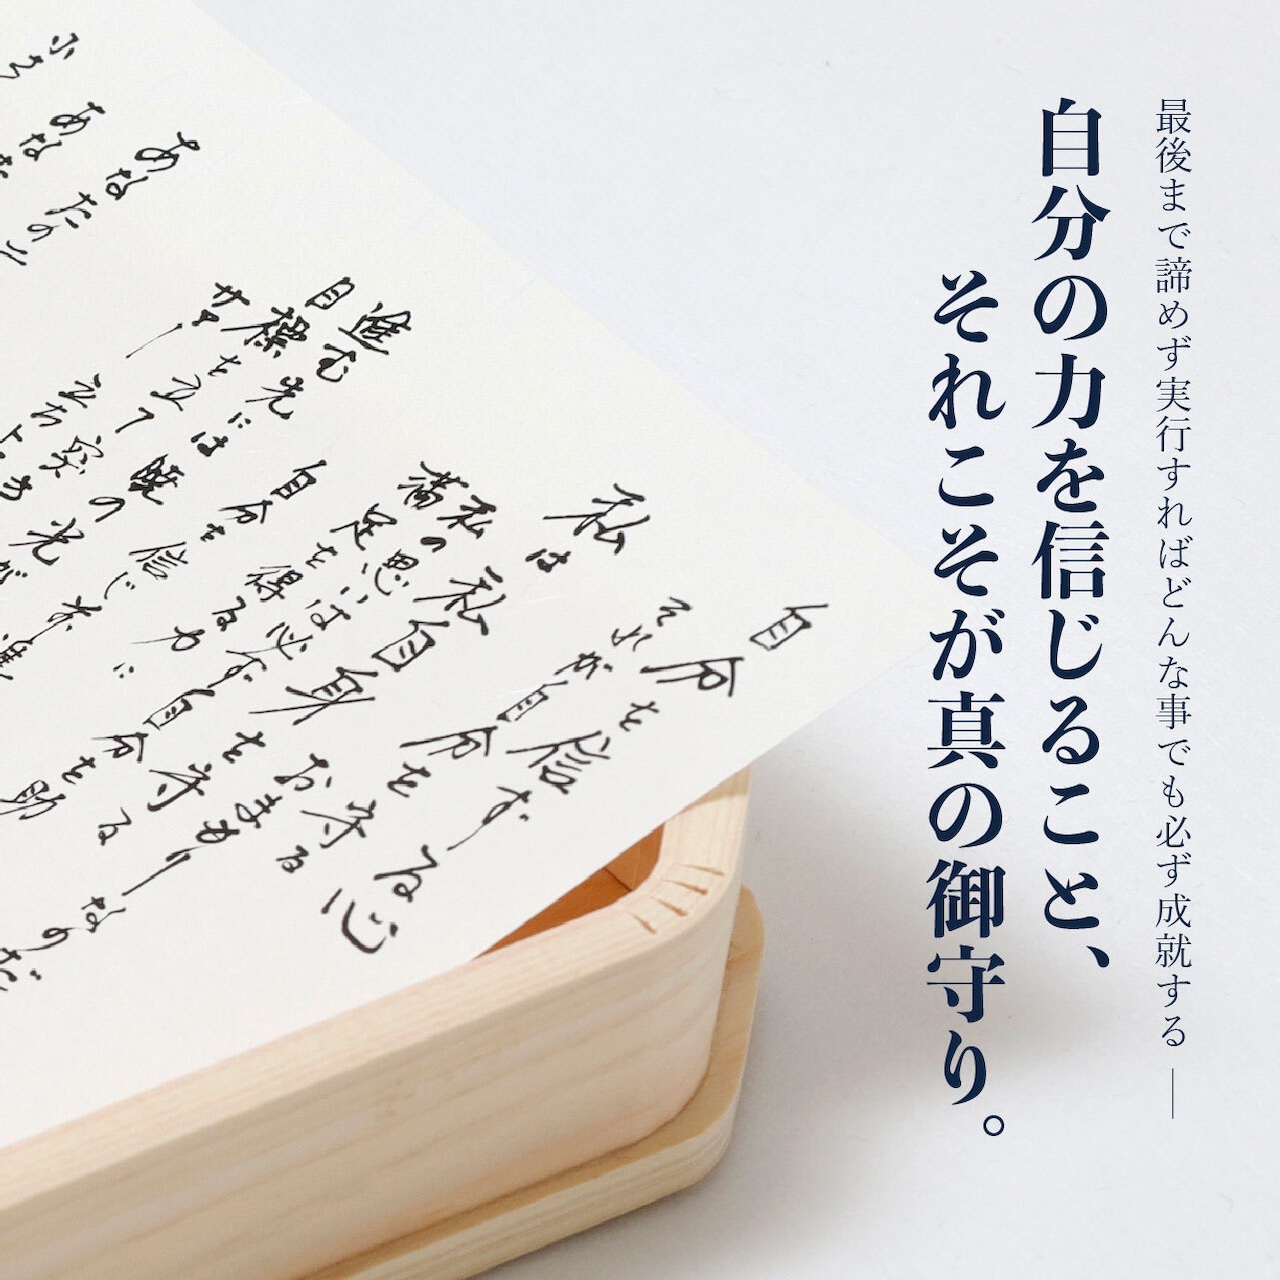 最後まで諦めず実行すればどんな事でも必ず成就する ―
自分の力を信じること、
それこそが真の御守り。
自分を信ずる心
それが自分を守る
私は私自身おまもり
私の思いは必ず自分を守る
満足を得る力に
自分を信じ
進む先には暁の光が
目標を立て突き進
サァー立ち上
あなたの
あなた